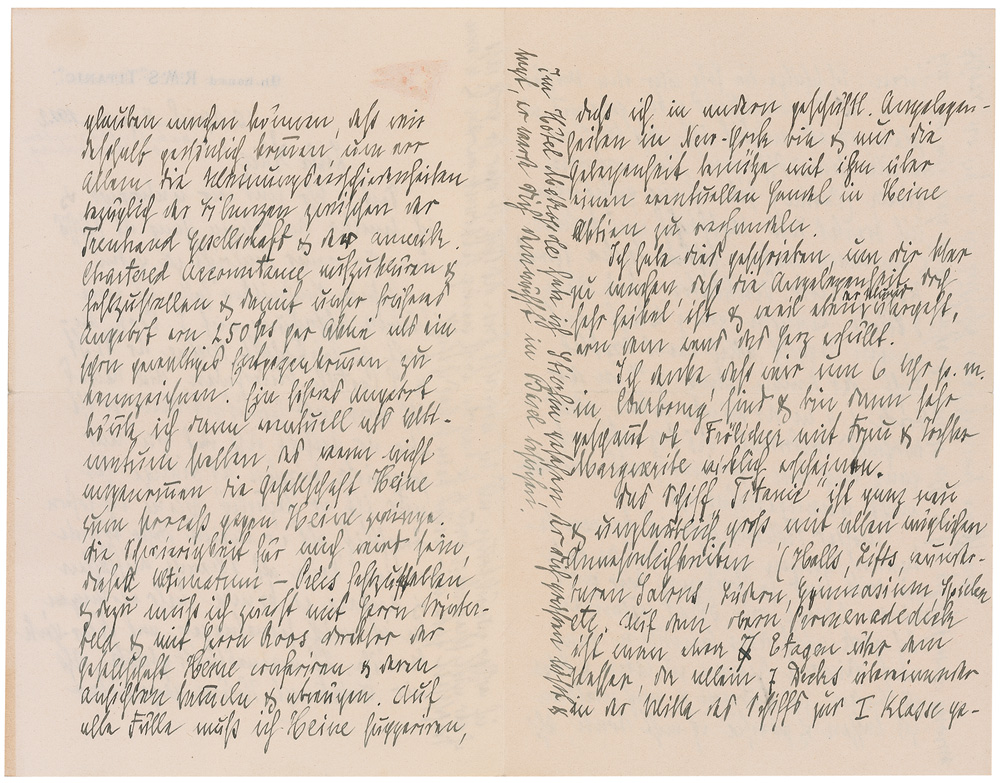 On board R.M.S. "TITANIC"
glauben machen können, daß wir
deßhalb persönlich kommen, um vor
Allem die Meinungsverschiedenheiten
bezüglich der Bilanzen zwischen der
Treuhand Gesellschaft & den amerik.
Chartered Accountants aufzuklären &
festzustellen & damit unser früheres
Angebot von 250 per Aktie als ein
schon gewaltiges Entgegenkommen zu
kennzeichnen. Ein höheres Angebot
ich dann eventuell als Ulti-
matum stellen, das wenn nicht
angenommen die Gesellschaft Heine
zum Process gegen Heine zwinge.
Die Schwierigkeit für mich wird sein,
dieses Ultimatum - Preis festzustellen
& dazu muß ich zuerst mit Herrn Winter-
feld & mit Herrn Roos Direktor der
Gesellschaft Heine conferiren & deren
Ansichten & abwägen. Auf
alle Fälle muß ich Heine suggeriren,
Im Hôtel habe ich Stierlin gesehen, der Dich grüßen läßt &
sagt, er werde Dich demnächst in Basel besuchen!
daß ich in andern geschäftl. Angelegen-
heiten in New-York bin & nur die
Gelegenheit benütze mit ihm über
einen eventuellen Handel in Heine
Aktien zu verhandeln.
Ich habe dies geschrieben, um Dir klar
zu machen, daß die Angelegenheit doch
sehr heikel ist & weil
von dem was das Herz erfüllt.
Ich denke daß wir um 6 Uhr p. m.
in Cherbourg sind & bin dann sehr
gespannt ob Frölicher mit Frau & Tochter
Margerite wirklich erscheinen.
Das Schiff "Titanic" ist ganz neu
& unglaublich groß mit allen möglichen
Annehmlichkeiten (Halls, Lifts,
baren Salons, Bädern, Gymnasium Spielen
etc. Auf dem obern Promenadedeck
ist man etwa 7 Etagen über dem
Wasser, da allein 7 Decks übereinander
in der Mitte des Schiffs zur I Klasse ge-